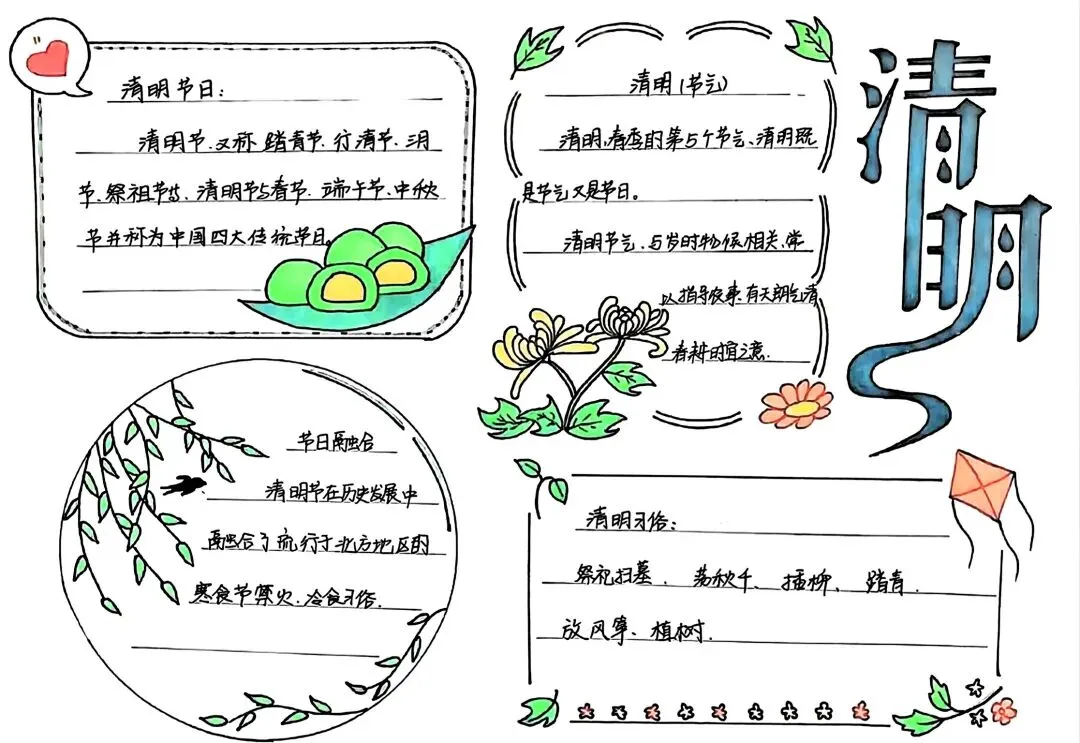 清明节日：
清明节、又称踏青节、行清节、三月
节、祭祖节等、清明节与春节、端午节、中秋
节并称为中国四大传统节日。
清明（节气）
清明，春季的第5个节气、清明既
是节气又是节日。
清明节气、与岁时物候相关、常
以指导农事、有天朗气清
春耕时宜之意.
清明
节日融合
清明节在历史发展中
融合了流行于北方地区的
寒食节禁火、冷食习俗.
清明习俗：
祭祀扫墓、荡秋千、插柳、踏青
放风筝、植树.